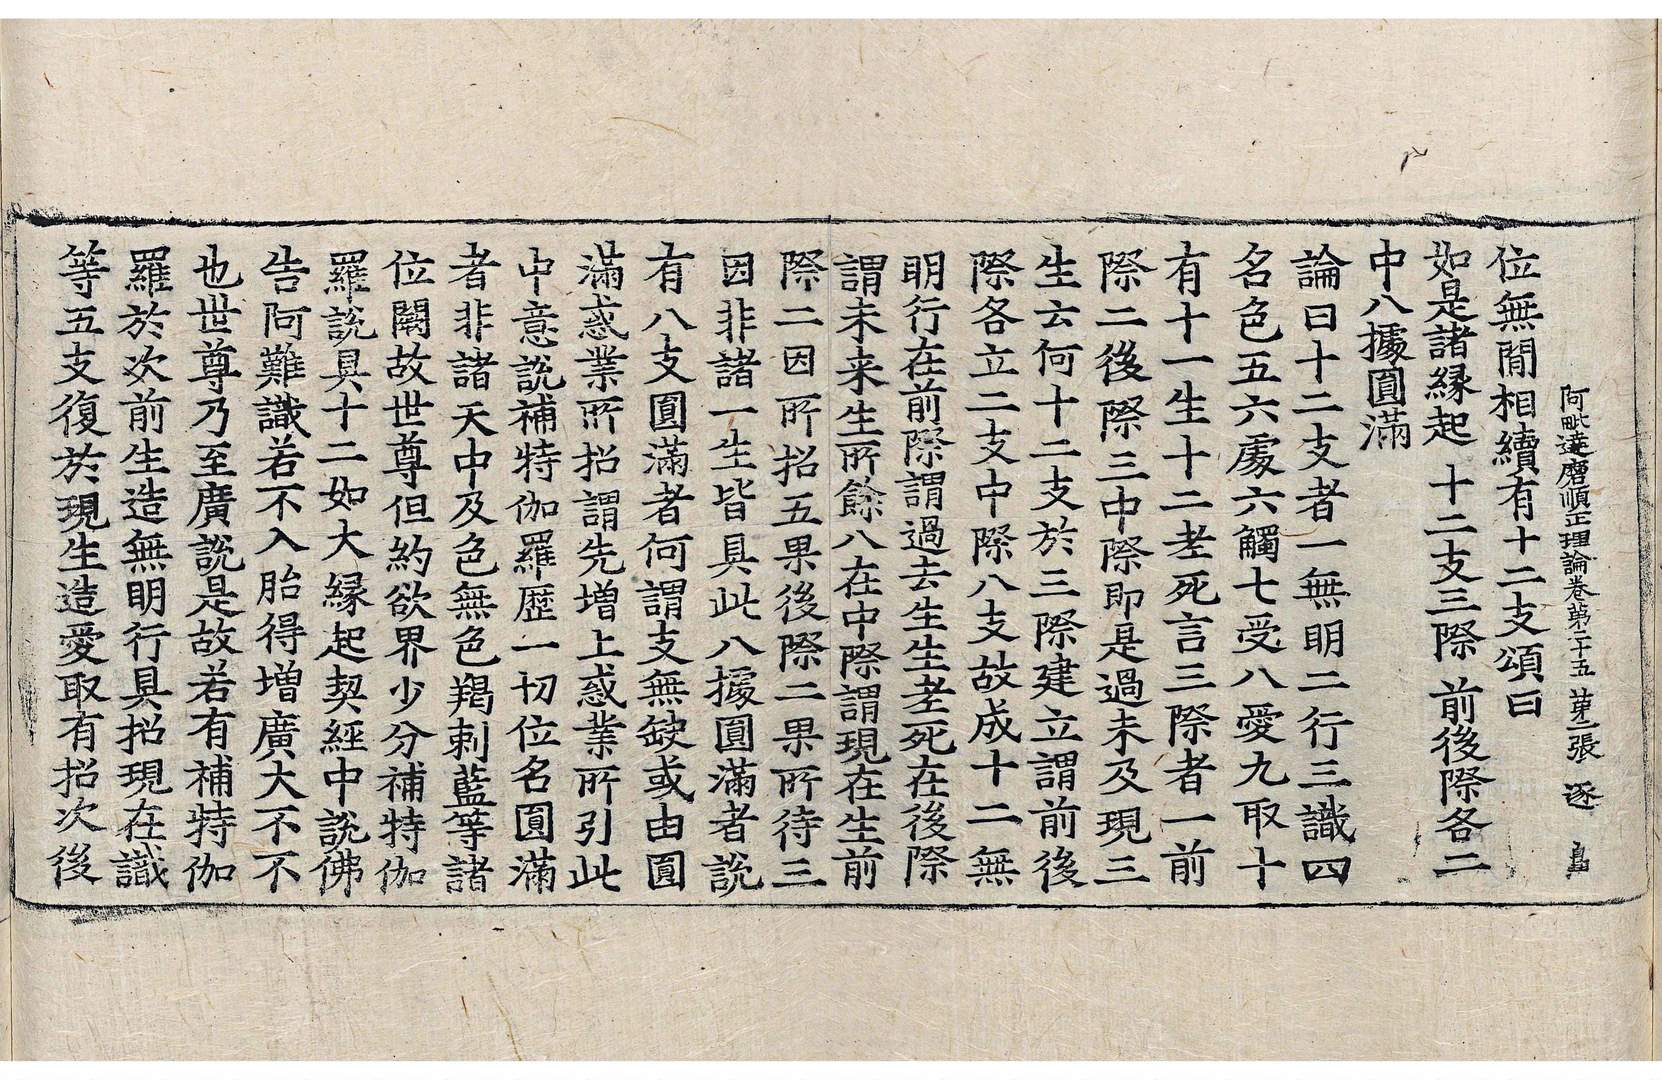 阿毗達磨順正理論卷第二十五 第二張 逐
位無間相續有十二支頌曰
如是諸縁起 十二支三際 前後際各二
中八據圓滿
論曰十二支者一無明二行三識四
名色五六處六觸七受八愛九取十
有十一生十二老死言三際者一前
際二後際三中際即是過未及現三
生云何十二支於三際建立謂前後
際各立二支中際八支故成十二無
明行在前際謂過去生生老死在後際
謂未来生所餘八在中際謂現在生前
際二因所招五果後際二果所待三
因非諸一生皆具此八據圓滿者說
有八支圓滿者何謂支無缺或由圓
滿惑業所招謂先增上惑業所引此
中意說補特伽羅歷一切位名圓滿
者非諸天中及色無色羯剌藍等諸
位闕故世尊但約欲界少分補特伽
羅說具十二如大縁起契經中說佛
告阿難識若不入胎得增廣大不不
也世尊乃至廣說是故若有補特伽
羅於次前生造無明行具招現在識
等五支復於現生造愛取有招次後